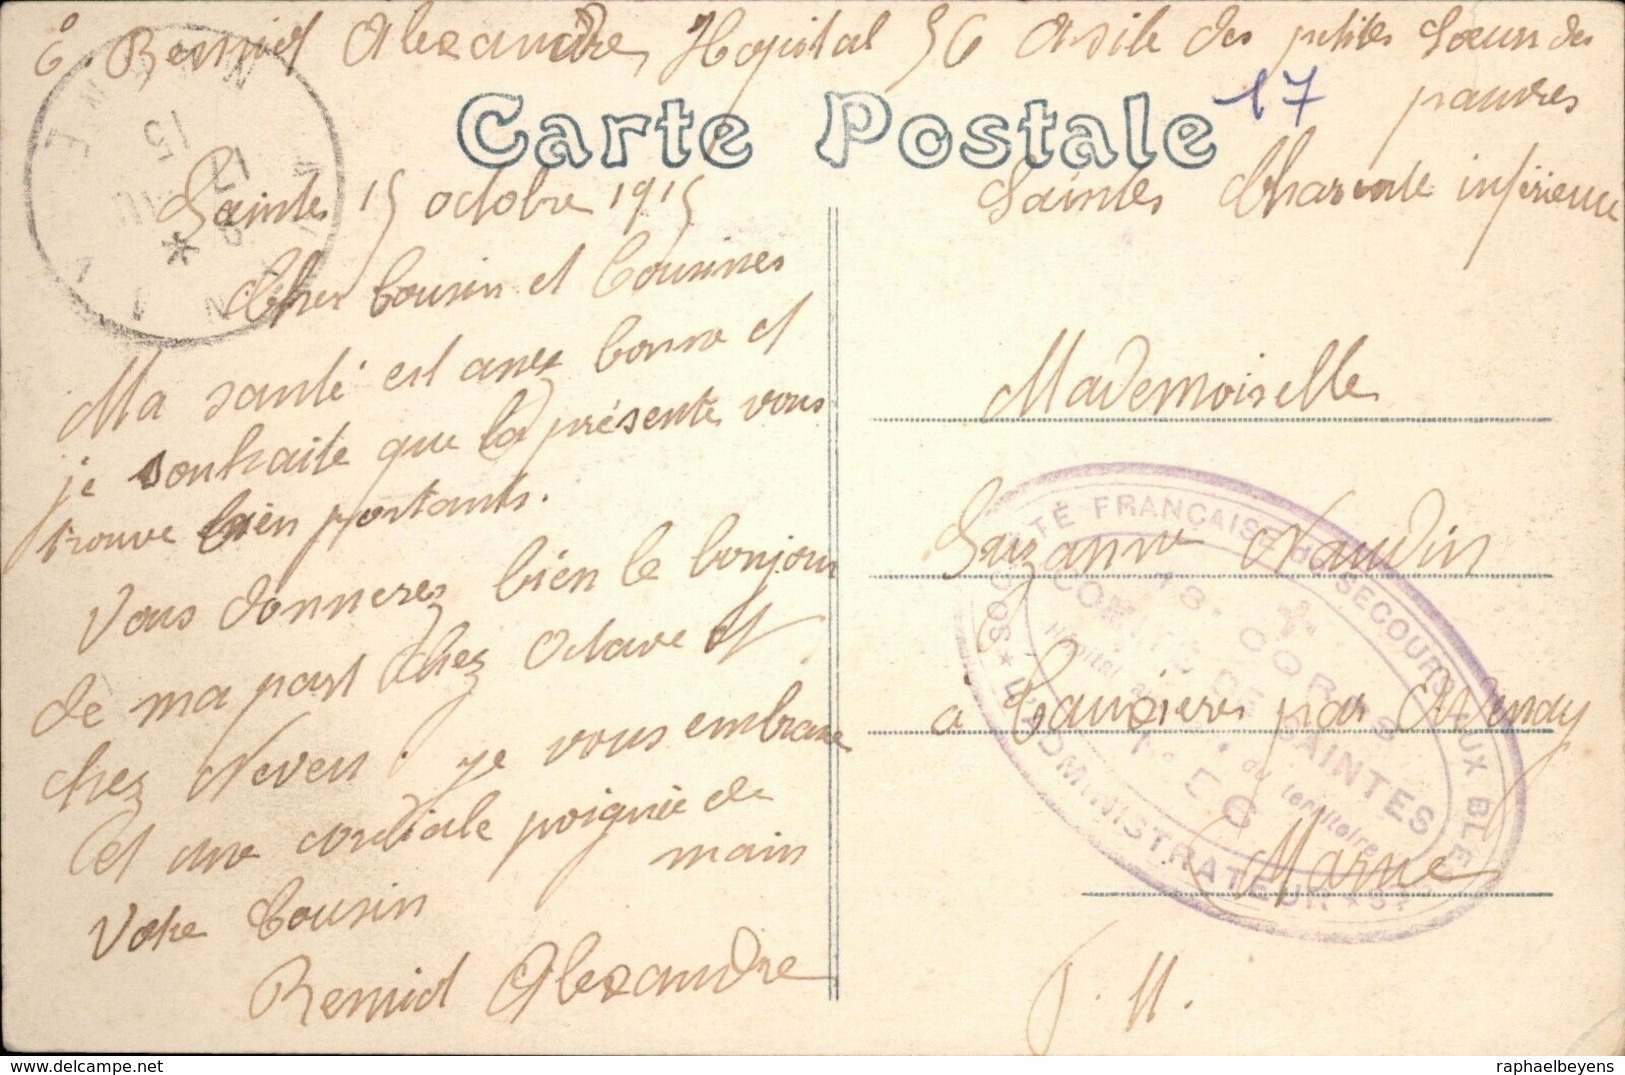 E. Remiot Alexandre, Hopital 56 Asile des petites Sœurs des
pauvres
Carte Postale
17
Saintes Charente inférieure
15
17
Saintes 15 octobre 1915
Cher Cousin et Cousines
Ma santé est assez bonne et
je souhaite que la présente vous
trouve bien portants.
Vous donnerez bien le bonjour
de ma part chez Octave et
chez Neveu. Je vous embrasse
et une cordiale poignée de
main
Votre Cousin
Remiot Alexandre
Mademoiselle
Suzanne Naudin
à par
Marne
F. M.
SOCIÉTÉ FRANÇAISE DE SECOURS AUX BLE
18e CORPS
COMITÉ DE SAINTES
Hôpital du territoire
N° 56
L'ADMINISTRATEUR
raphaelbeyens